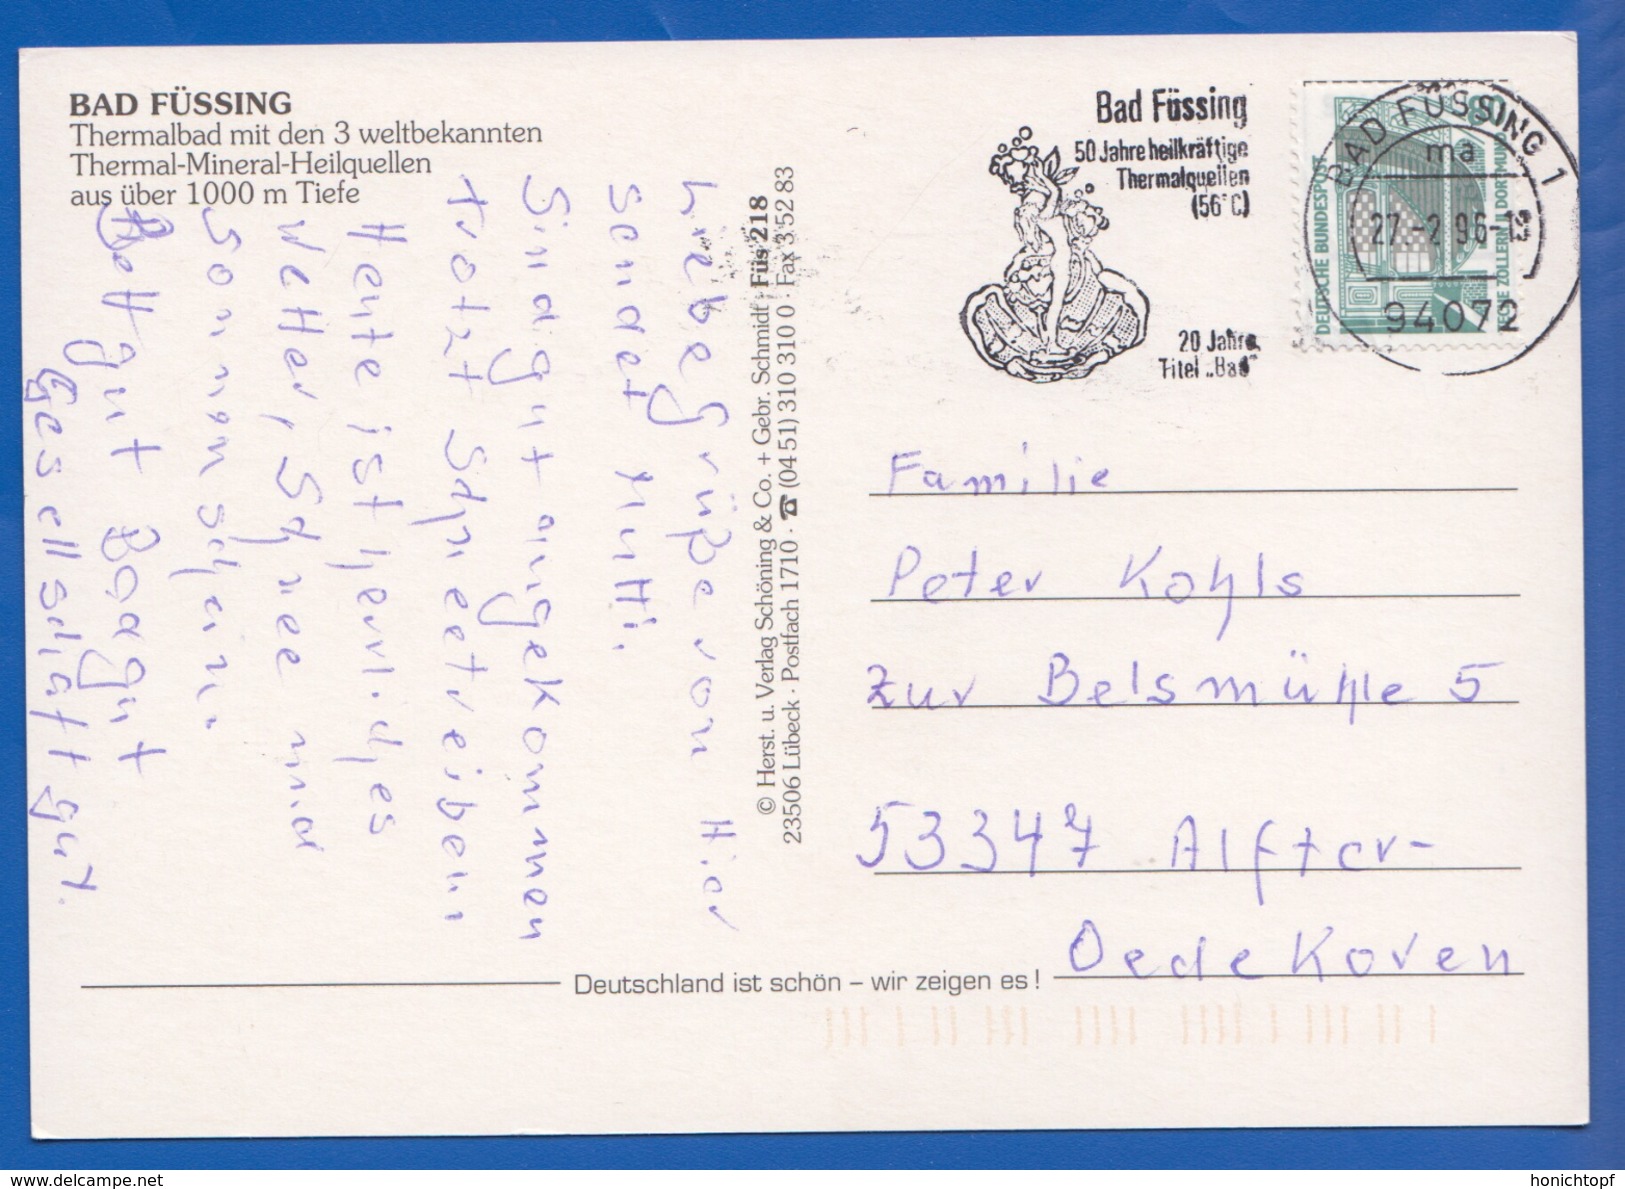 BAD FÜSSING
Thermalbad mit den 3 weltbekannten
Thermal-Mineral-Heilquellen
aus über 1000 m Tiefe
Liebe Grüße von Hier
sendet Mutti.
Sind gut angekommen
trotzt Schneetreiben
Heute ist herrliches
Wetter, Schnee und
Sonnenschein.
Bett gut
Gesellschaft gut.
© Herst. u. Verlag Schöning & Co. + Gebr. Schmidt · Füs 218
23506 Lübeck · Postfach 1710 · ☎ (04 51) 310 310 0 · Fax 3 52 83
Bad Füssing
50 Jahre heilkräftige
Thermalquellen
(56°C)
20 Jahre
Titel „Bad"
BAD FÜSSING 1
ma
27.-2.96-
94072
DEUTSCHE BUNDESPOST
ZECHE ZOLLERN II DORTMUND
Familie
Peter Kohls
Zur Belsmühle 5
53347 Alfter-
Oedekoven
Deutschland ist schön – wir zeigen es!
www.delcampe.net
honichtopf